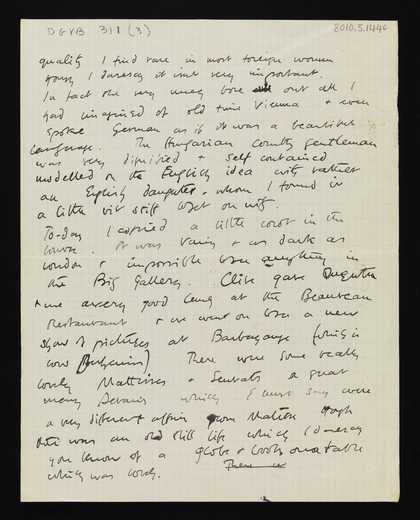 DGVB 311 (3)
8010.5.1446
quality I find rare in most foreign women
though I daresay it isnt very important.
In fact she very nearly bore out all I
had imagined of old time Vienna & even
spoke German as if it was a beautiful
language. The Hungarian County gentleman
was very dignified & self contained
modelled on the English idea with rather
an English daughter, whom I found in
a little bit stiff to get on with.
To-day I copied a little corot in the
Louvre. It was rainy & as dark as
London & impossible to see anything in
the Big Gallery. Clive gave Quentin
& me a very good lunch at the Beaureau
Restaurant & we went on to see a new
show of pictures at Barbazange (which is
now Hodebert). There were some really
lovely Matisses & Seurats a great
many Derains which I must say were
a very different affair from Matisse though
there was an old still life which I daresay
you know of a globe & books on a table
which was lovely.
There